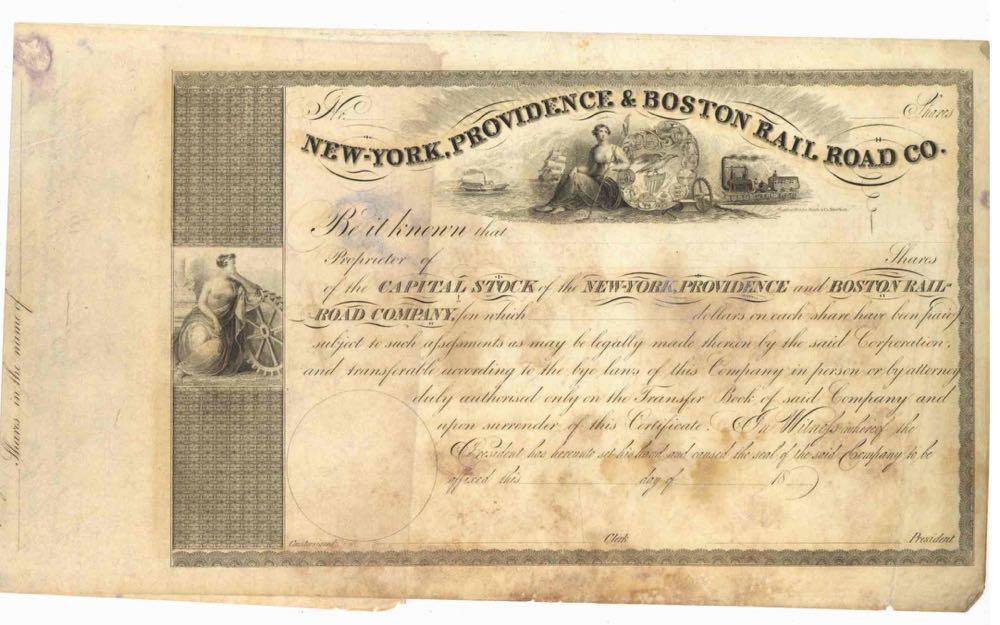 No. Shares
NEW-YORK, PROVIDENCE & BOSTON RAIL ROAD CO.
Be it known that
Proprietor of Shares
of the CAPITAL STOCK of the NEW-YORK, PROVIDENCE and BOSTON RAIL-
ROAD COMPANY, on which dollars on each share have been paid
subject to such assessments as may be legally made thereon by the said Corporation,
and transferable according to the bye laws of this Company in person or by attorney
duly authorised only on the Transfer Book of said Company and
upon surrender of this Certificate. In Witness whereof the
President has hereunto set his hand and caused the seal of the said Company to be
affixed this day of 18
Countersigned Clerk President
Shares in the name of